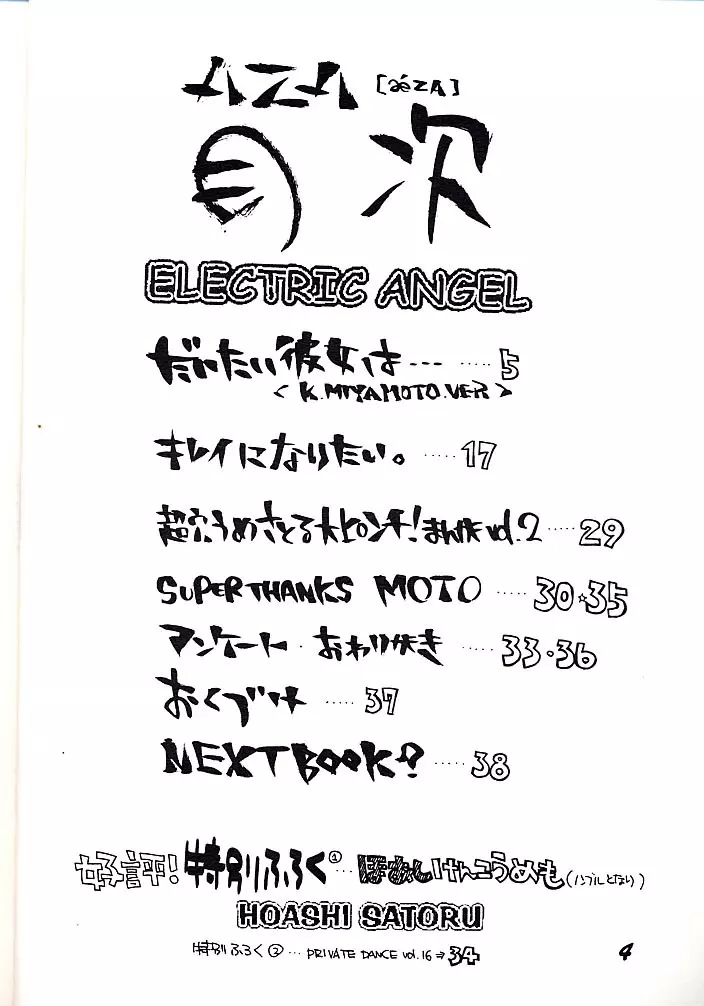 AZA [aézA]
目次
ELECTRIC ANGEL
だいたい彼女は--- ・・・・・ 5
< K.MIYAMOTO.VER >
キレイになりたい。 ・・・・・ 17
超穴うめさとる大ピンチ!まんが vol.2 ・・・・・ 29
SUPER THANKS MOTO ・・・・・ 30☆35
アンケート・おわりがき ・・・・・ 33・36
おくづけ ・・・・・ 37
NEXT BOOK? ・・・・・ 38
好評!特別ふろく① ・・・ほあしけんこうめも(ノンブルとなり)
HOASHI SATORU
特別ふろく② ・・・ PRIVATE DANCE vol.16 ⇒ 34
4